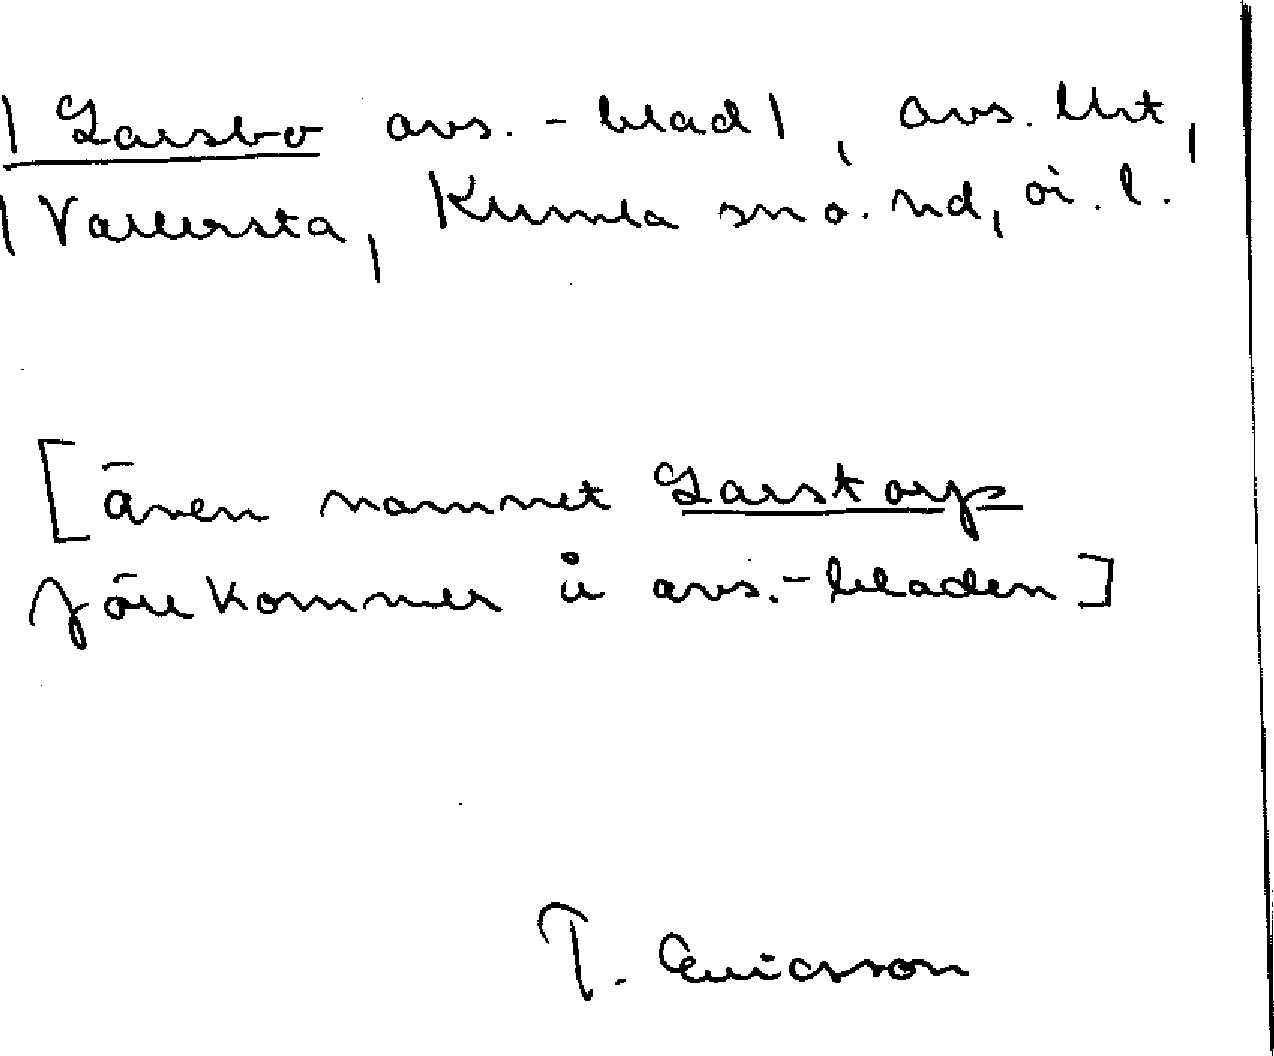 | Larsbo avs.-blad |, avs. lht,
| Vallersta, Kumla sn o. hd, ö. l.
[även namnet Larstorp
förekommer å avs.-bladen]
T. Ericsson